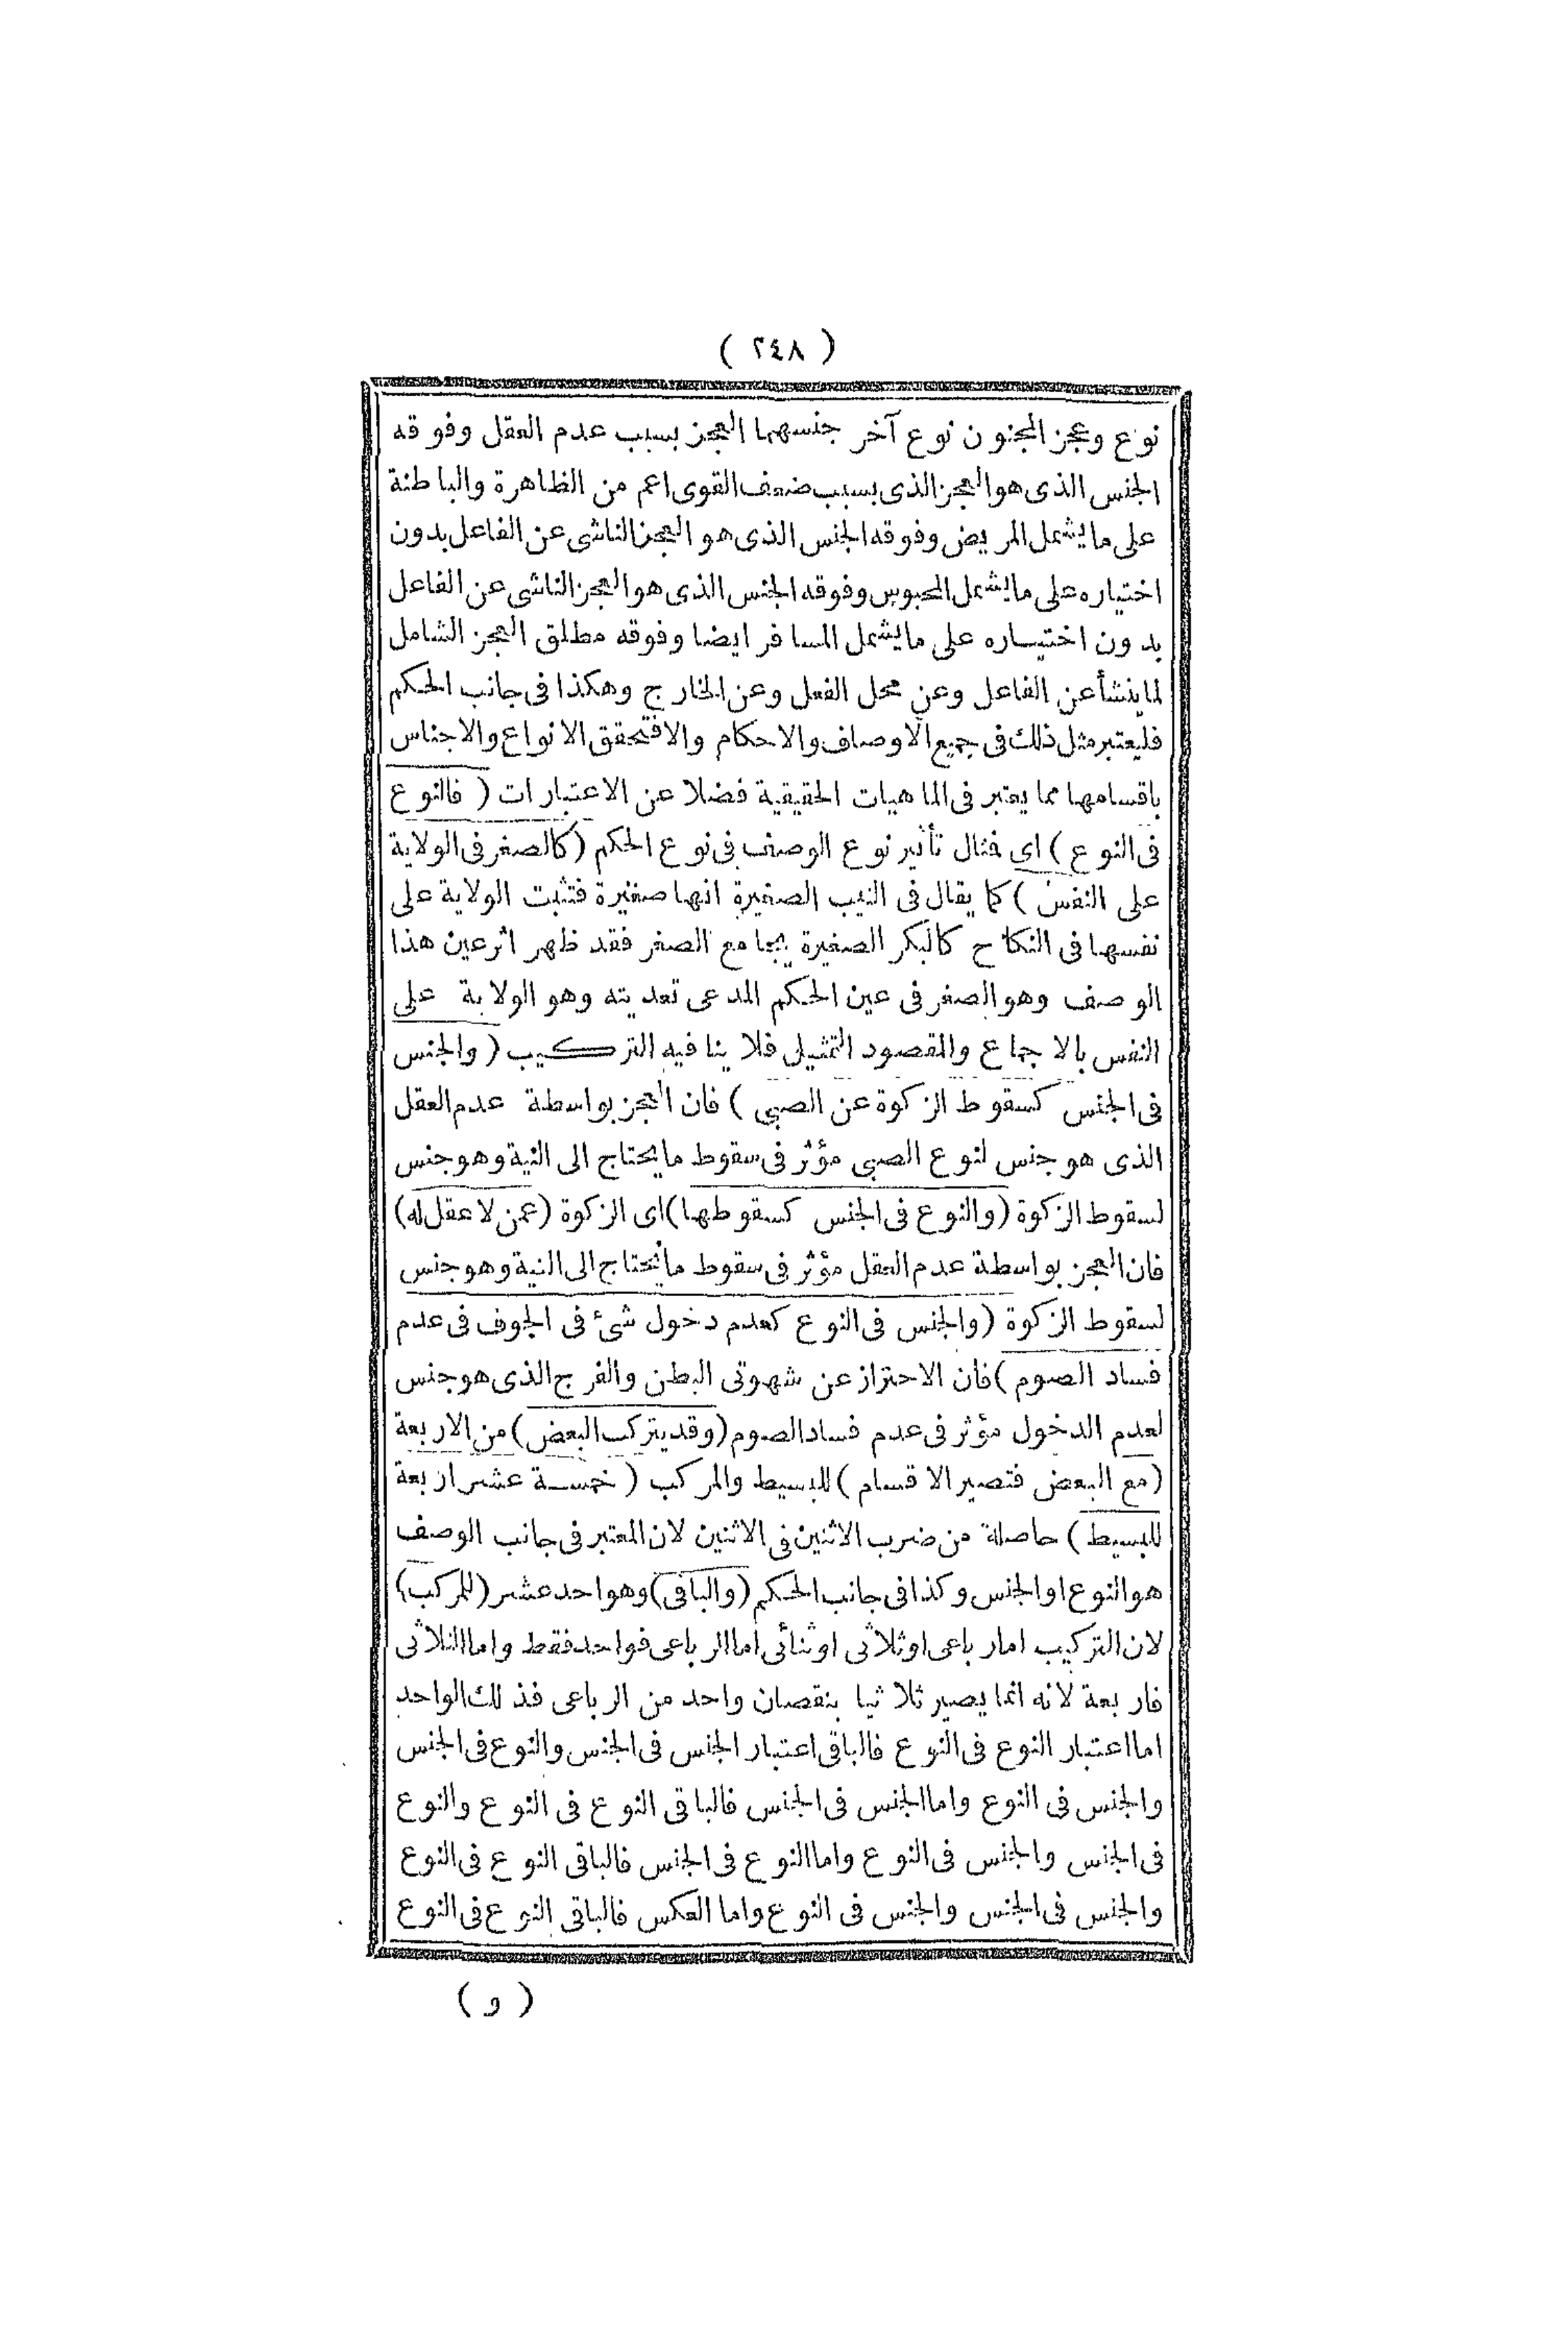 ( ٢٤٨ )
نوع وعجز المجنون نوع آخر جنسهما العجز بسبب عدم العقل وفوقه
الجنس الذى هو العجز الذى بسبب ضعف القوى اعم من الظاهرة والباطنة
على ما يشمل المريض وفوقه الجنس الذى هو العجز الناشى عن الفاعل بدون
اختياره على ما يشمل المحبوس وفوقه الجنس الذى هو العجز الناشى عن الفاعل
بدون اختياره على ما يشمل المسافر ايضا وفوقه مطلق العجز الشامل
لما ينشأ عن الفاعل وعن محل الفعل وعن الخارج وهكذا فى جانب الحكم
فليعتبر مثل ذلك فى جميع الاوصاف والاحكام والا فتحقق الانواع والاجناس
باقسامها مما يعتبر فى الماهيات الحقيقية فضلا عن الاعتبارات ( فالنوع
فى النوع ) اى فمثال تأثير نوع الوصف فى نوع الحكم ( كالصغر فى الولاية
على النفس ) كما يقال فى الثيب الصغيرة انها صغيرة فتثبت الولاية على
نفسها فى النكاح كالبكر الصغيرة بجامع الصغر فقد ظهر اثر عين هذا
الوصف وهو الصغر فى عين الحكم المدعى تعديته وهو الولاية على
النفس بالاجماع والمقصود التمثيل فلا ينافيه التركيب ( والجنس
فى الجنس كسقوط الزكوة عن الصبى ) فان العجز بواسطة عدم العقل
الذى هو جنس لنوع الصبى مؤثر فى سقوط ما يحتاج الى النية وهو جنس
لسقوط الزكوة ( والنوع فى الجنس كسقوطها ) اى الزكوة ( عمن لا عقل له )
فان العجز بواسطة عدم العقل مؤثر فى سقوط ما يحتاج الى النية وهو جنس
لسقوط الزكوة ( والجنس فى النوع كعدم دخول شئ فى الجوف فى عدم
فساد الصوم ) فان الاحتراز عن شهوتى البطن والفرج الذى هو جنس
لعدم الدخول مؤثر فى عدم فساد الصوم ( وقد يتركب البعض ) من الاربعة
( مع البعض فتصير الاقسام ) للبسيط والمركب ( خمسة عشر اربعة
للبسيط ) حاصلة من ضرب الاثنين فى الاثنين لان المعتبر فى جانب الوصف
هو النوع او الجنس وكذا فى جانب الحكم ( والباقى ) وهو احد عشر ( للمركب )
لان التركيب اما رباعى او ثلاثى او ثنائى اما الرباعى فواحد فقط واما الثلاثى
فاربعة لانه انما يصير ثلاثيا بنقصان واحد من الرباعى فذلك الواحد
اما اعتبار النوع فى النوع فالباقى اعتبار الجنس فى الجنس والنوع فى الجنس
والجنس فى النوع واما الجنس فى الجنس فالباقى النوع فى النوع والنوع
فى الجنس والجنس فى النوع واما النوع فى الجنس فالباقى النوع فى النوع
والجنس فى الجنس والجنس فى النوع واما العكس فالباقى النوع فى النوع
( و )